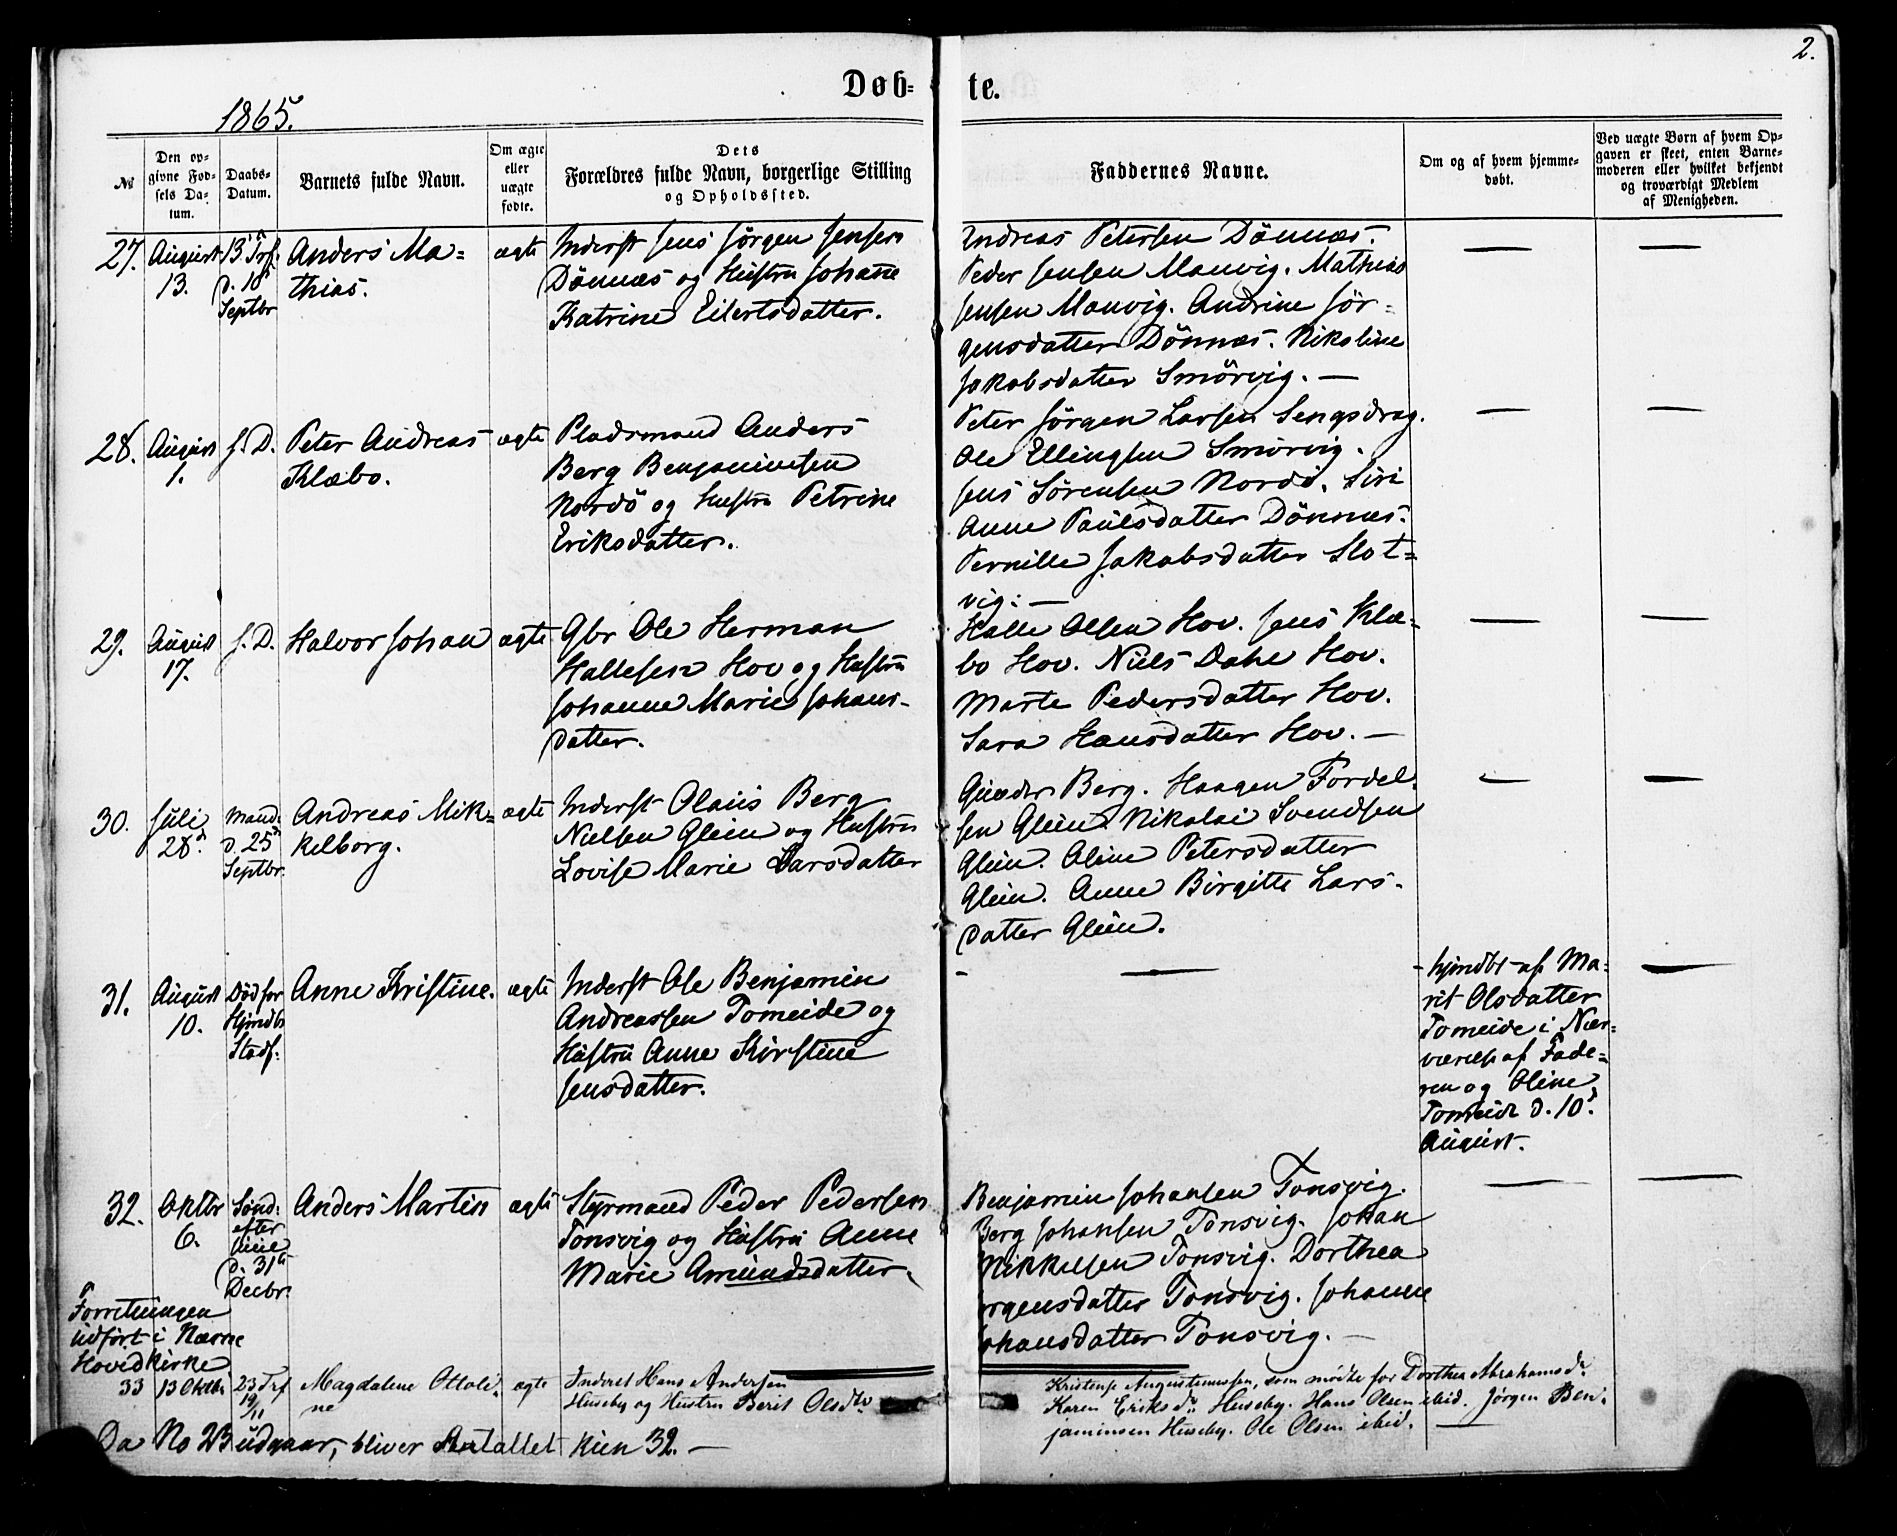 2.
Døb- te.
1865.
№
Den op-
givne Fød-
sels Da-
tum.
Daabs-
Datum.
Barnets fulde Navn.
Om ægte
eller
uægte
fødte.
Dets
Forældres fulde Navn, borgerlige Stilling
og Opholdssted.
Faddernes Navne.
Om og af hvem hjemme-
døbt.
Ved uægte Børn af hvem Op-
gaven er skeet, enten Barne-
moderen eller hvilket bekjendt
og troværdigt Medlem
af Menigheden.
27.
August
13.
13 Trf.
d. 10
Septbr
Anders Ma=
thias.
ægte
Inderst Jens Jörgen Jensen
Dönnæs og Hustru Johanne
Katrine Eilertsdatter.
Andreas Petersen Dönnæs.
Peder Jensen Manvig. Mathias
Jensen Manvig. Andrine Jör-
gensdatter Dönnæs. Nikoline
Jakobsdatter Smörvig. —
—
—
28.
August
1.
s. D.
Peter Andreas
Klæbo.
ægte
Pladsmand Anders
Berg Benjaminsen
Nordö og Hustru Petrine
Eriksdatter.
Peter Jörgen Larsen Sengsdrag.
Ole Ellingsen Smörvig.
Jens Sörensen Nordö. Siri
Anne Paulsdatter Dönnæs.
Pernille Jakobsdatter Slot=
vig. —
—
—
29.
August
17.
s. D.
Halvor Johan
ægte
Gbr Ole Herman
Hallesen Hov og Hustru
Johanne Marie Johans-
datter.
Halle Olsen Hov. Jens Klæ-
bo Hov. Niels Dahl Hov.
Marte Pedersdatter Hov.
Sara Hansdatter Hov. —
—
—
30.
Juli
28d
Mand.
d. 25d
Septbr.
Andreas Mik=
kelborg.
ægte
Inderst Olaus Berg
Nielsen Glein og Hustru
Lovise Marie Larsdatter
Berg. Haagen Fordel
sen Glein. Nikolai Svendsen
Glein. Oline Petersdatter
Glein. Anne Birgitte Lars-
datter Glein.
—
—
31.
August
10.
Död før
Hjmdb
Stadf.
Anne Kristine.
ægte
Inderst Ole Benjamin
Andreassen Tomeide og
Hustru Anne Kirstine
Jensdatter.
—
hjmdbt af Ma-
rit Olsdatter
Tomeide i Nær-
værelse af Fade-
ren og Oline
Tomeide d. 10d
August.
—
32.
Oktbr
6.
Sönd.
efter
Juul
d. 31te
Decbr.
Anders Martin
ægte
Styrmand Peder Pedersen
Tonsvig og Hustru Anne
Marie Amundsdatter.
Benjamin Johansen Tonsvig.
Berg Johansen Tonsvig. Johan
Mikkelsen Tonsvig. Dorthea
rgensdatter Tonsvig. Johanne
ohansdatter Tonsvig. —
—
—
Forretningen
udfört i Nærne
Hovedkirke
33
13 Oktbr
23 Trf
19/11
Magdalene Ottoli-
ne
ægte
Inderst Hans Andersen
Huseby og Hustru Berit Olsdtr
Kristense Augustinussen, som mödte for Dorthea Abrahamsdr
Karen Eriksdr Huseby. Hans Olsen ibid. Jørgen Ben-
jaminsen Huseby. Ole Olsen ibid. —
Da No 23 udgaar, bliver Antallet kun 32. —